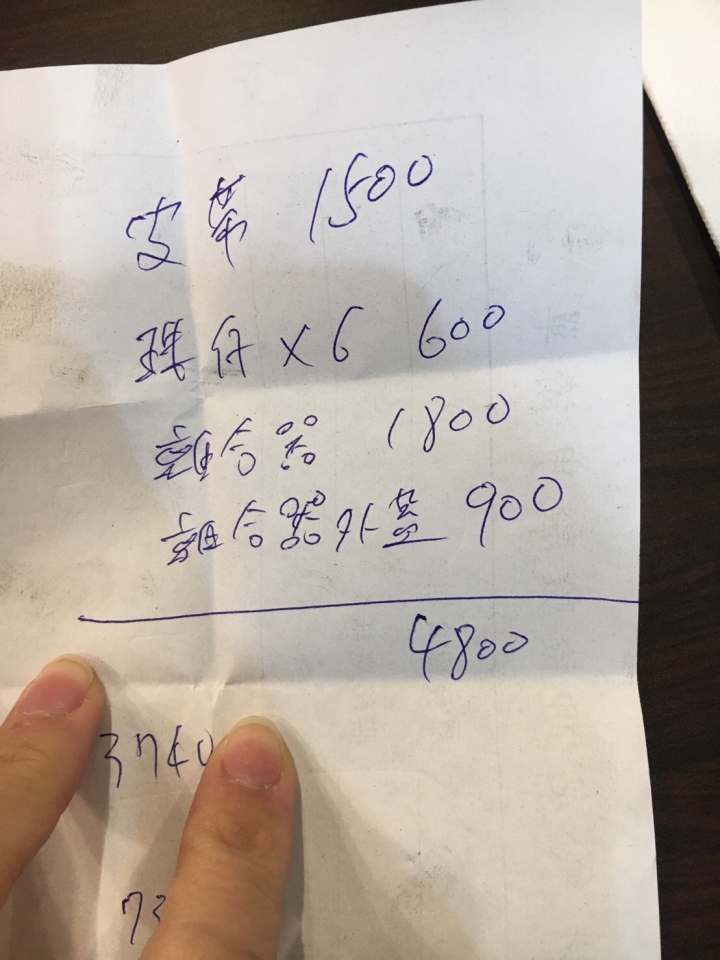 皮帶 1500
珠仔×6 600
離合器 1800
離合器外蓋 900
4800
3740